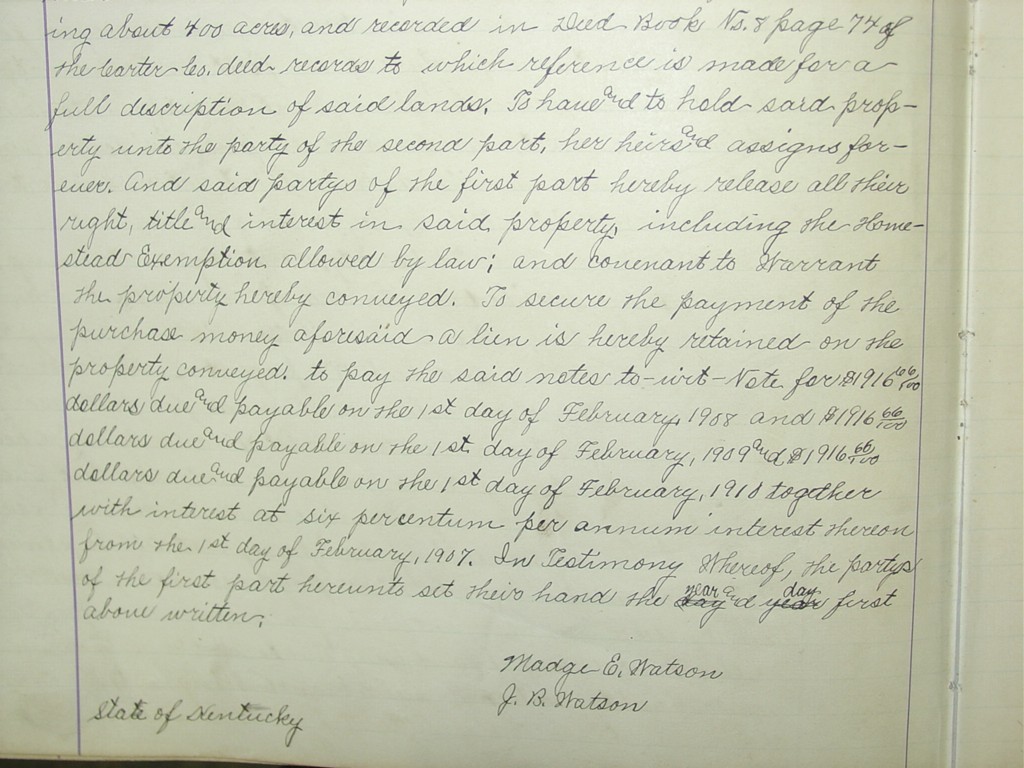 ing about 400 acres, and recorded in Deed Book No. 8 page 74 of
the Carter Co. deed records to which reference is made for a
full description of said lands. To have and to hold said prop-
erty unto the party of the second part, her heirs and assigns for-
ever. And said partys of the first part hereby release all their
right, title and interest in said property, including the Home-
stead Exemption allowed by law; and covenant to Warrant
the property hereby conveyed. To secure the payment of the
purchase money aforesaid a lien is hereby retained on the
property conveyed. to pay the said notes to-wit- Note for $1916 66/100
dollars due and payable on the 1st day of February, 1908 and $1916 66/100
dollars due and payable on the 1st day of February, 1909 and $1916 66/100
dollars due and payable on the 1st day of February, 1910 together
with interest at six percentum per annum interest thereon
from the 1st day of February, 1907. In Testimony Whereof, the partys
of the first part hereunto set their hand the day year and year day first
above written.
Madge E. Watson
J. B. Watson
State of Kentucky